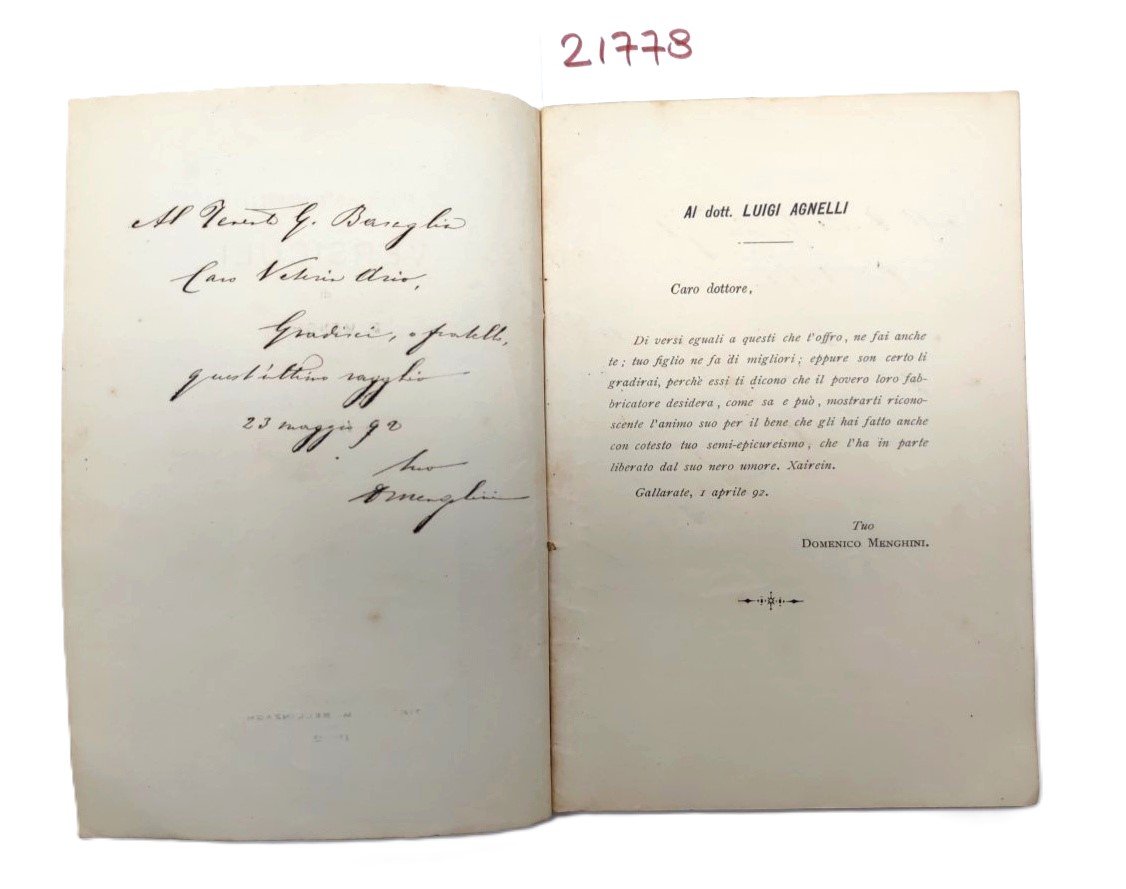 21778
Al Tenente G. Berseglio
Caro
Gradisci, o fratello,
quest'ultimo raggio
23 maggio 92
tuo
DMenghini
Al dott. LUIGI AGNELLI
Caro dottore,
Di versi eguali a questi che t'offro, ne fai anche
te; tuo figlio ne fa di migliori; eppure son certo li
gradirai, perchè essi ti dicono che il povero loro fab-
bricatore desidera, come sa e può, mostrarti ricono-
scente l'animo suo per il bene che gli hai fatto anche
con cotesto tuo semi-epicureismo, che l'ha in parte
liberato dal suo nero umore. Xairein.
Gallarate, 1 aprile 92.
Tuo
DOMENICO MENGHINI.